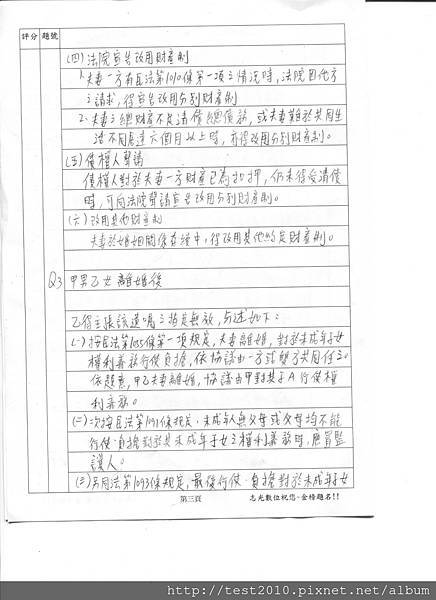 評分 題號
(四)法院宣告改用財產制
1.夫妻一方有民法第1010條第一項之情況時,法院因他方
之請求,得宣告改用分別財產制
2.夫妻之總財產不足清償總債務,或夫妻難於共同生
活不同居達六個月以上時,亦得改用分別財產制。
(五)債權人聲請
債權人對於夫妻一方財產已為扣押,仍未得受清償
時,可向法院聲請宣告改用分別財產制。
(六)改用其他財產制
夫妻於婚姻關係存續中,得改用其他約定財產制。
Q3 甲男乙女離婚後
乙得主張該遺囑之指定無效,分述如下:
(一)按民法第1055條第一項規定,夫妻離婚,對於未成年子女
權利義務行使負擔,依協議由一方或雙方共同任之。
依題意,甲乙夫妻離婚,協議由甲對其子A行使權
利義務。
(二)次按民法第1091條規定,未成年人無父母或父母均不能
行使、負擔對於其未成年子女之權利義務時,應置監
護人。
(三)另同法第1093條規定,最後行使、負擔對於未成年子女
第三頁
志光數位祝您-金榜題名!!
http://test2010.pixnet.net/album